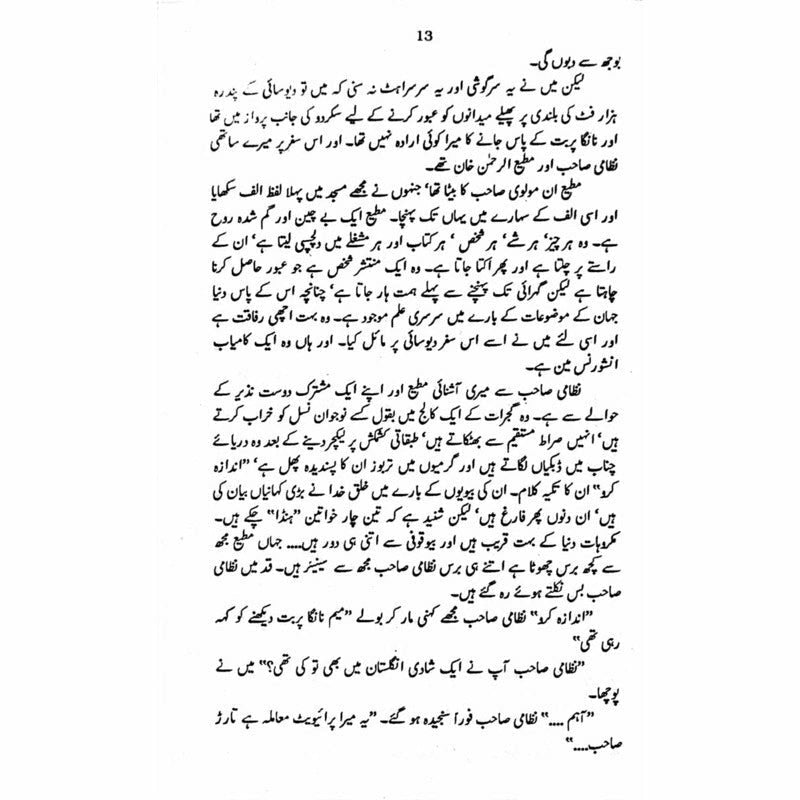 13
بوجھ سے دبوں گی۔
لیکن میں نے یہ سرگوشی اور یہ سرسراہٹ نہ سنی کہ میں تو دیوسائی کے پندرہ
ہزار فٹ کی بلندی پر پھیلے میدانوں کو عبور کرنے کے لیے سکردو کی جانب پرواز میں تھا
اور نانگا پربت کے پاس جانے کا میرا کوئی ارادہ نہیں تھا۔ اور اس سفر پر میرے ساتھی
نظامی صاحب اور مطیع الرحمٰن خان تھے۔
مطیع ان مولوی صاحب کا بیٹا تھا‘ جنہوں نے مجھے مسجد میں پہلا لفظ الف سکھایا
اور اسی الف کے سہارے میں یہاں تک پہنچا۔ مطیع ایک بے چین اور گم شدہ روح
ہے۔ وہ ہر چیز‘ ہر شے‘ ہر شخص ‘ ہر کتاب اور ہر مشغلے میں دلچسپی لیتا ہے‘ ان کے
راستے پر چلتا ہے اور پھر اکتا جاتا ہے۔ وہ ایک منتشر شخص ہے جو عبور حاصل کرنا
چاہتا ہے لیکن گہرائی تک پہنچنے سے پہلے ہمت ہار جاتا ہے‘ چنانچہ اس کے پاس دنیا
جہان کے موضوعات کے بارے میں سرسری علم موجود ہے۔ وہ بہت اچھی رفاقت ہے
اور اسی لئے میں نے اسے اس سفر دیوسائی پر مائل کیا۔ اور ہاں وہ ایک کامیاب
انشورنس مین ہے۔
نظامی صاحب سے میری آشنائی مطیع اور اپنے ایک مشترک دوست نذیر کے
حوالے سے ہے۔ وہ گجرات کے ایک کالج میں بقول کسے نوجوان نسل کو خراب کرتے
ہیں‘ انہیں صراط مستقیم سے بھٹکاتے ہیں‘ طبقاتی کشمکش پر لیکچر دینے کے بعد وہ دریائے
چناب میں ڈبکیاں لگاتے ہیں اور گرمیوں میں تربوز ان کا پسندیدہ پھل ہے‘ ”اندازہ
کرو“ ان کا تکیہ کلام۔ ان کی بیویوں کے بارے میں خلق خدا نے بڑی کہانیاں بیان کی
ہیں‘ ان دنوں پھر فارغ ہیں‘ لیکن شنید ہے کہ تین چار خواتین ”ہنڈا“ چکے ہیں۔
مکروہات دنیا کے بہت قریب ہیں اور بیوقوفی سے اتنی ہی دور ہیں.... جہاں مطیع مجھ
سے کچھ برس چھوٹا ہے اتنے ہی برس نظامی صاحب مجھ سے سینیئر ہیں۔ قد میں نظامی
صاحب بس نکلتے ہوئے رہ گئے ہیں۔
”اندازہ کرو“ نظامی صاحب مجھے کہنی مار کر بولے ”میم نانگا پربت دیکھنے کو کہہ
رہی تھی“
”نظامی صاحب آپ نے ایک شادی انگلستان میں بھی تو کی تھی؟“ میں نے
پوچھا۔
”آہم ....“ نظامی صاحب فوراً سنجیدہ ہو گئے۔ ”یہ میرا پرائیویٹ معاملہ ہے تارڑ
صاحب....“